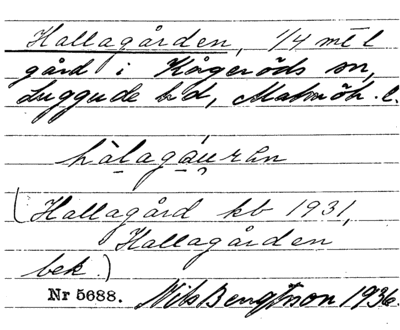 Hallagården, 1/4 mtl
gård i Kågeröds sn,
Luggude hd, Malmöh. l.
hàlagáu̯rån
(Hallagård kb 1931,
Hallagården
bek.)
Nr 5688. Nils Bengtsson 1936.